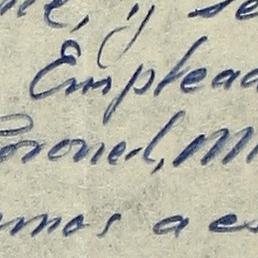 ne, y se
Emplead
Coronel, M
emos a es